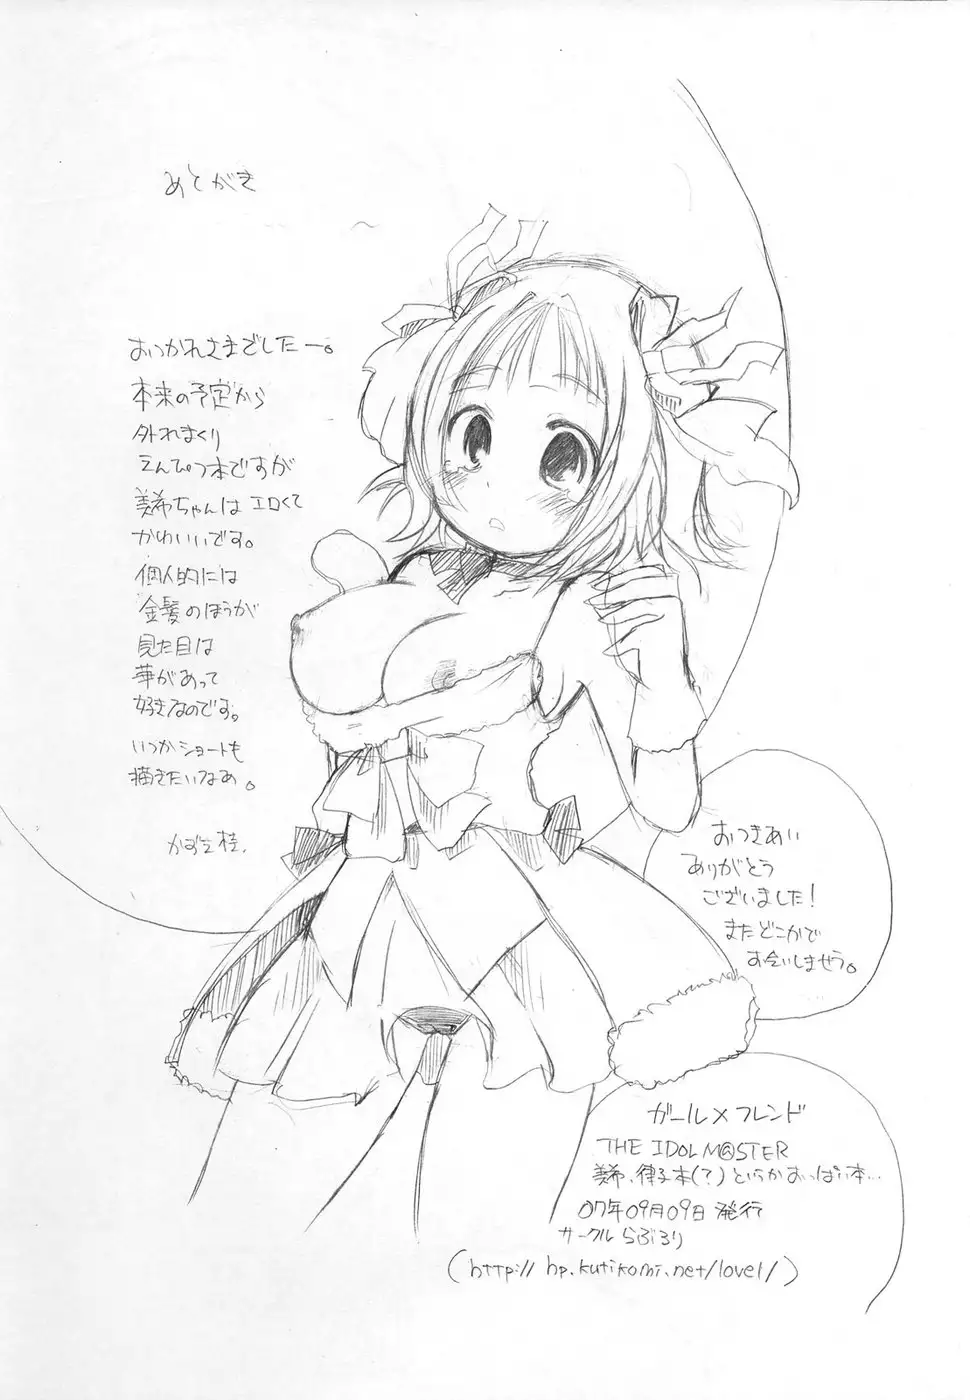 あとがき
おつかれさまでしたー。
本来の予定から
外れまくり
えんぴつ本ですが
美希ちゃんはエロくて
かわいいです。
個人的には
金髪のほうが
見た目は
華があって
好きなのです。
いつかショートも
描きたいなあ。
かず立桂.
おつきあい
ありがとう
ございました!
またどこかで
お会いしませう。
ガール×フレンド
THE IDOLM@STER
美希、律子本(?)というかおっぱい本…
07年09月09日 発行
サークル らぶろり
(http://hp.kutikomi.net/lovel/)